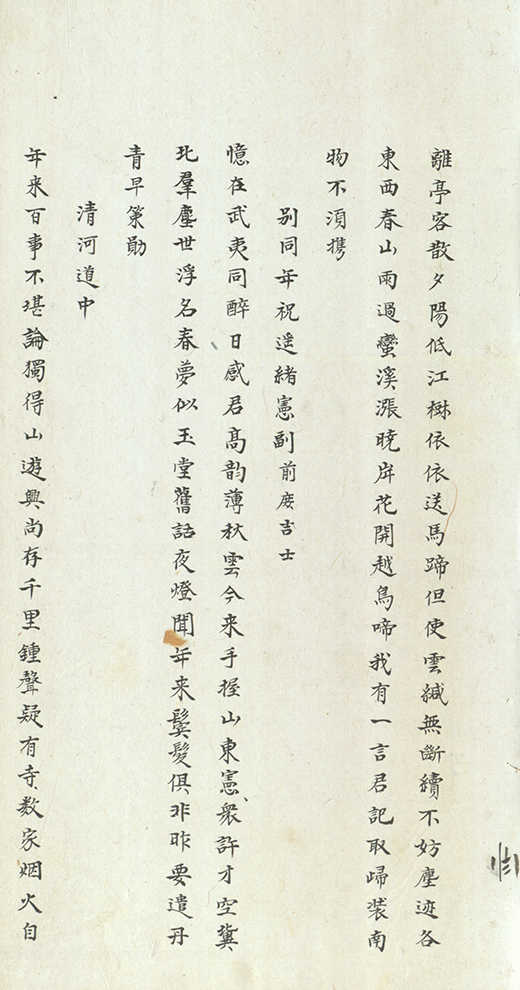 離亭客散夕陽低江樹依依送馬蹄但使雲緘無斷續不妨塵迹各
東西春山雨過蠻溪漲曉岸花開越鳥啼我有一言君記取歸裝南
物不須攜
別同年祝遥緒憲副前庶吉士
憶在武夷同醉日感君高韵薄秋雲今来手握山東憲衆許才空冀
北羣塵世浮名春夢似玉堂舊話夜燈聞年来鬓髮俱非昨要遣丹
青早策勛
清河道中
年来百事不堪論獨得山遊興尚存千里鍾聲疑有寺数家烟火自